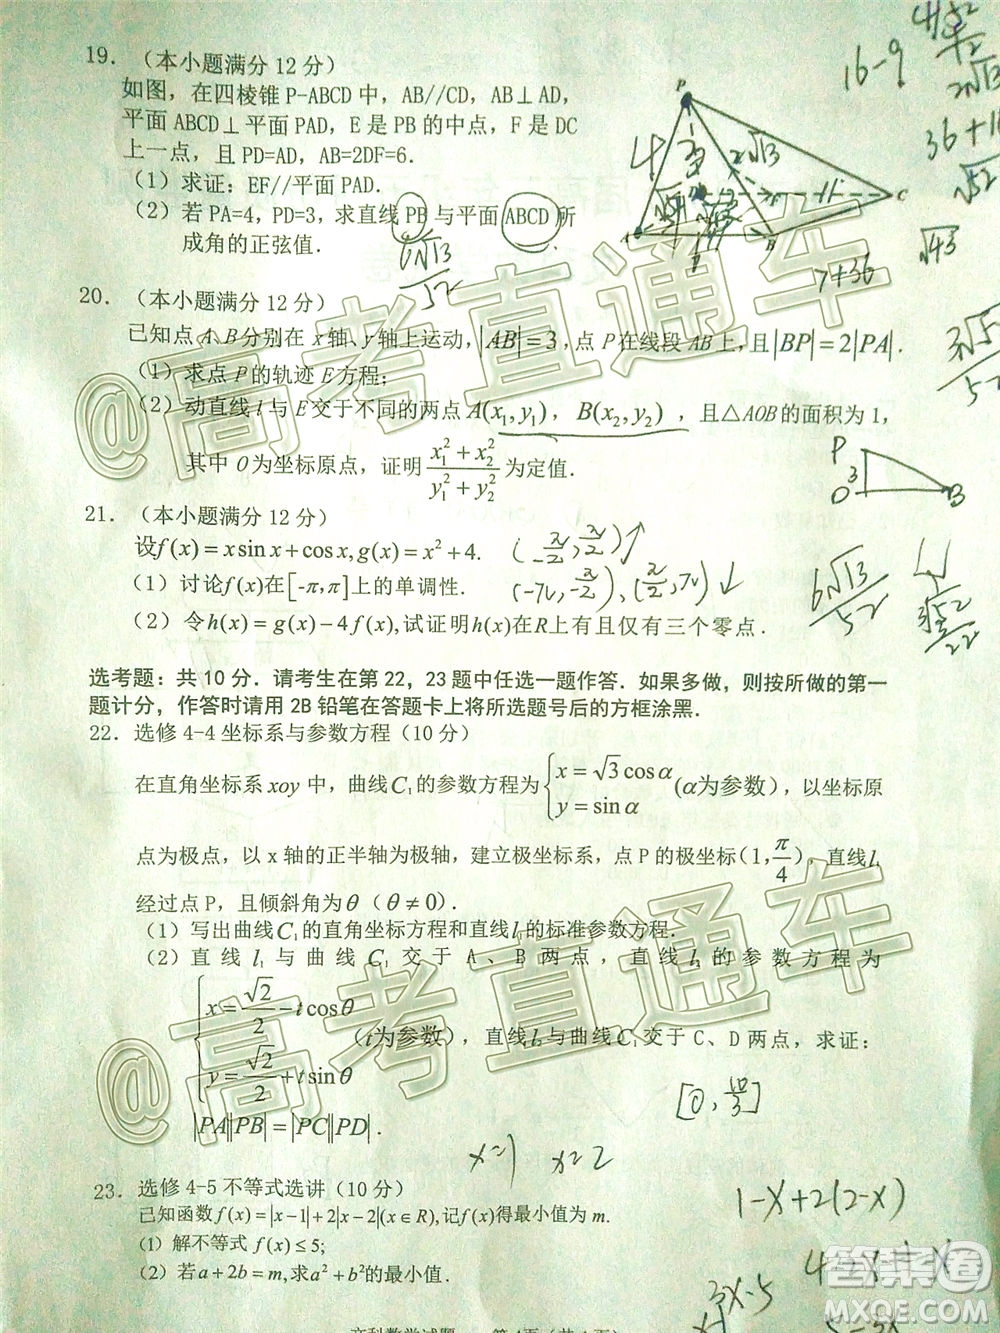 19. （本小题满分12分）
如图，在四棱锥P-ABCD中，AB//CD，AB⊥AD，
平面ABCD⊥平面PAD，E是PB的中点，F是DC
上一点，且PD=AD，AB=2DF=6.
（1）求证：EF//平面PAD.
（2）若PA=4，PD=3，求直线PB与平面ABCD所
成角的正弦值.
16-9
2√13
36+1
√52
√43
7+36
4
2√13
P
C
B
6√13/52
20. （本小题满分12分）
已知点A、B分别在x轴、y轴上运动，|AB|=3，点P在线段AB上，且|BP|=2|PA|.
（1）求点P的轨迹E方程；
（2）动直线l与E交于不同的两点A(x₁,y₁)，B(x₂,y₂)，且△AOB的面积为1，
其中O为坐标原点，证明(x₁²+x₂²)/(y₁²+y₂²)为定值.
P
3
O
B
21. （本小题满分12分）
设f(x)=xsinx+cosx,g(x)=x²+4.
(-π/2,π/2)↑
（1）讨论f(x)在[-π,π]上的单调性.
(-π,-π/2),(π/2,π)↓
（2）令h(x)=g(x)-4f(x),试证明h(x)在R上有且仅有三个零点.
6√13/52
选考题：共10分．请考生在第22，23题中任选一题作答．如果多做，则按所做的第一
题计分，作答时请用2B铅笔在答题卡上将所选题号后的方框涂黑.
22. 选修4-4坐标系与参数方程（10分）
在直角坐标系xoy中，曲线C₁的参数方程为{x=√3cosα y=sinα (α为参数)，以坐标原
点为极点，以x轴的正半轴为极轴，建立极坐标系，点P的极坐标(1,π/4)，直线l₁
经过点P，且倾斜角为θ（θ≠0）.
（1）写出曲线C₁的直角坐标方程和直线l₁的标准参数方程.
（2）直线l₁与曲线C₁交于A、B两点，直线l₂的参数方程为
{x=√2/2-tcosθ y=√2/2+tsinθ (t为参数)，直线l₂与曲线C₁交于C、D两点，求证：
|PA||PB|=|PC||PD|.
[0,10/3]
x=1 x=2
23. 选修4-5不等式选讲（10分）
已知函数f(x)=|x-1|+2|x-2|(x∈R),记f(x)得最小值为m.
（1）解不等式f(x)≤5;
（2）若a+2b=m,求a²+b²的最小值.
1-x+2(2-x)
3x-5
文科数学试题
@高考直通车
@高考直通车
答案圈
MXQE.COM